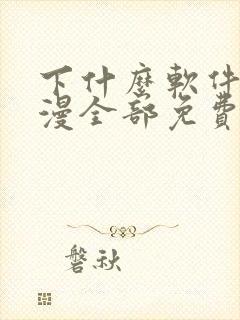 下什麼軟件
漫全部免費
磐秋